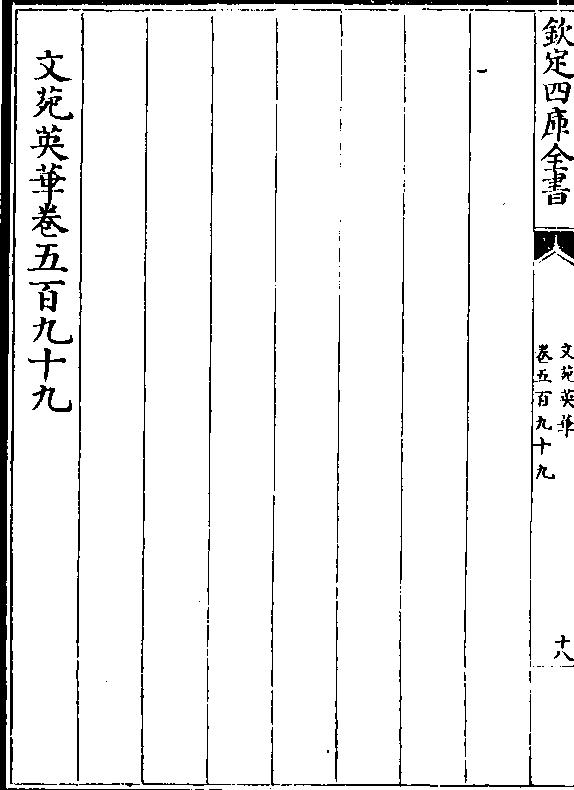 欽定四庫全書
文苑英華
卷五百九十九
十八
文苑英華卷五百九十九